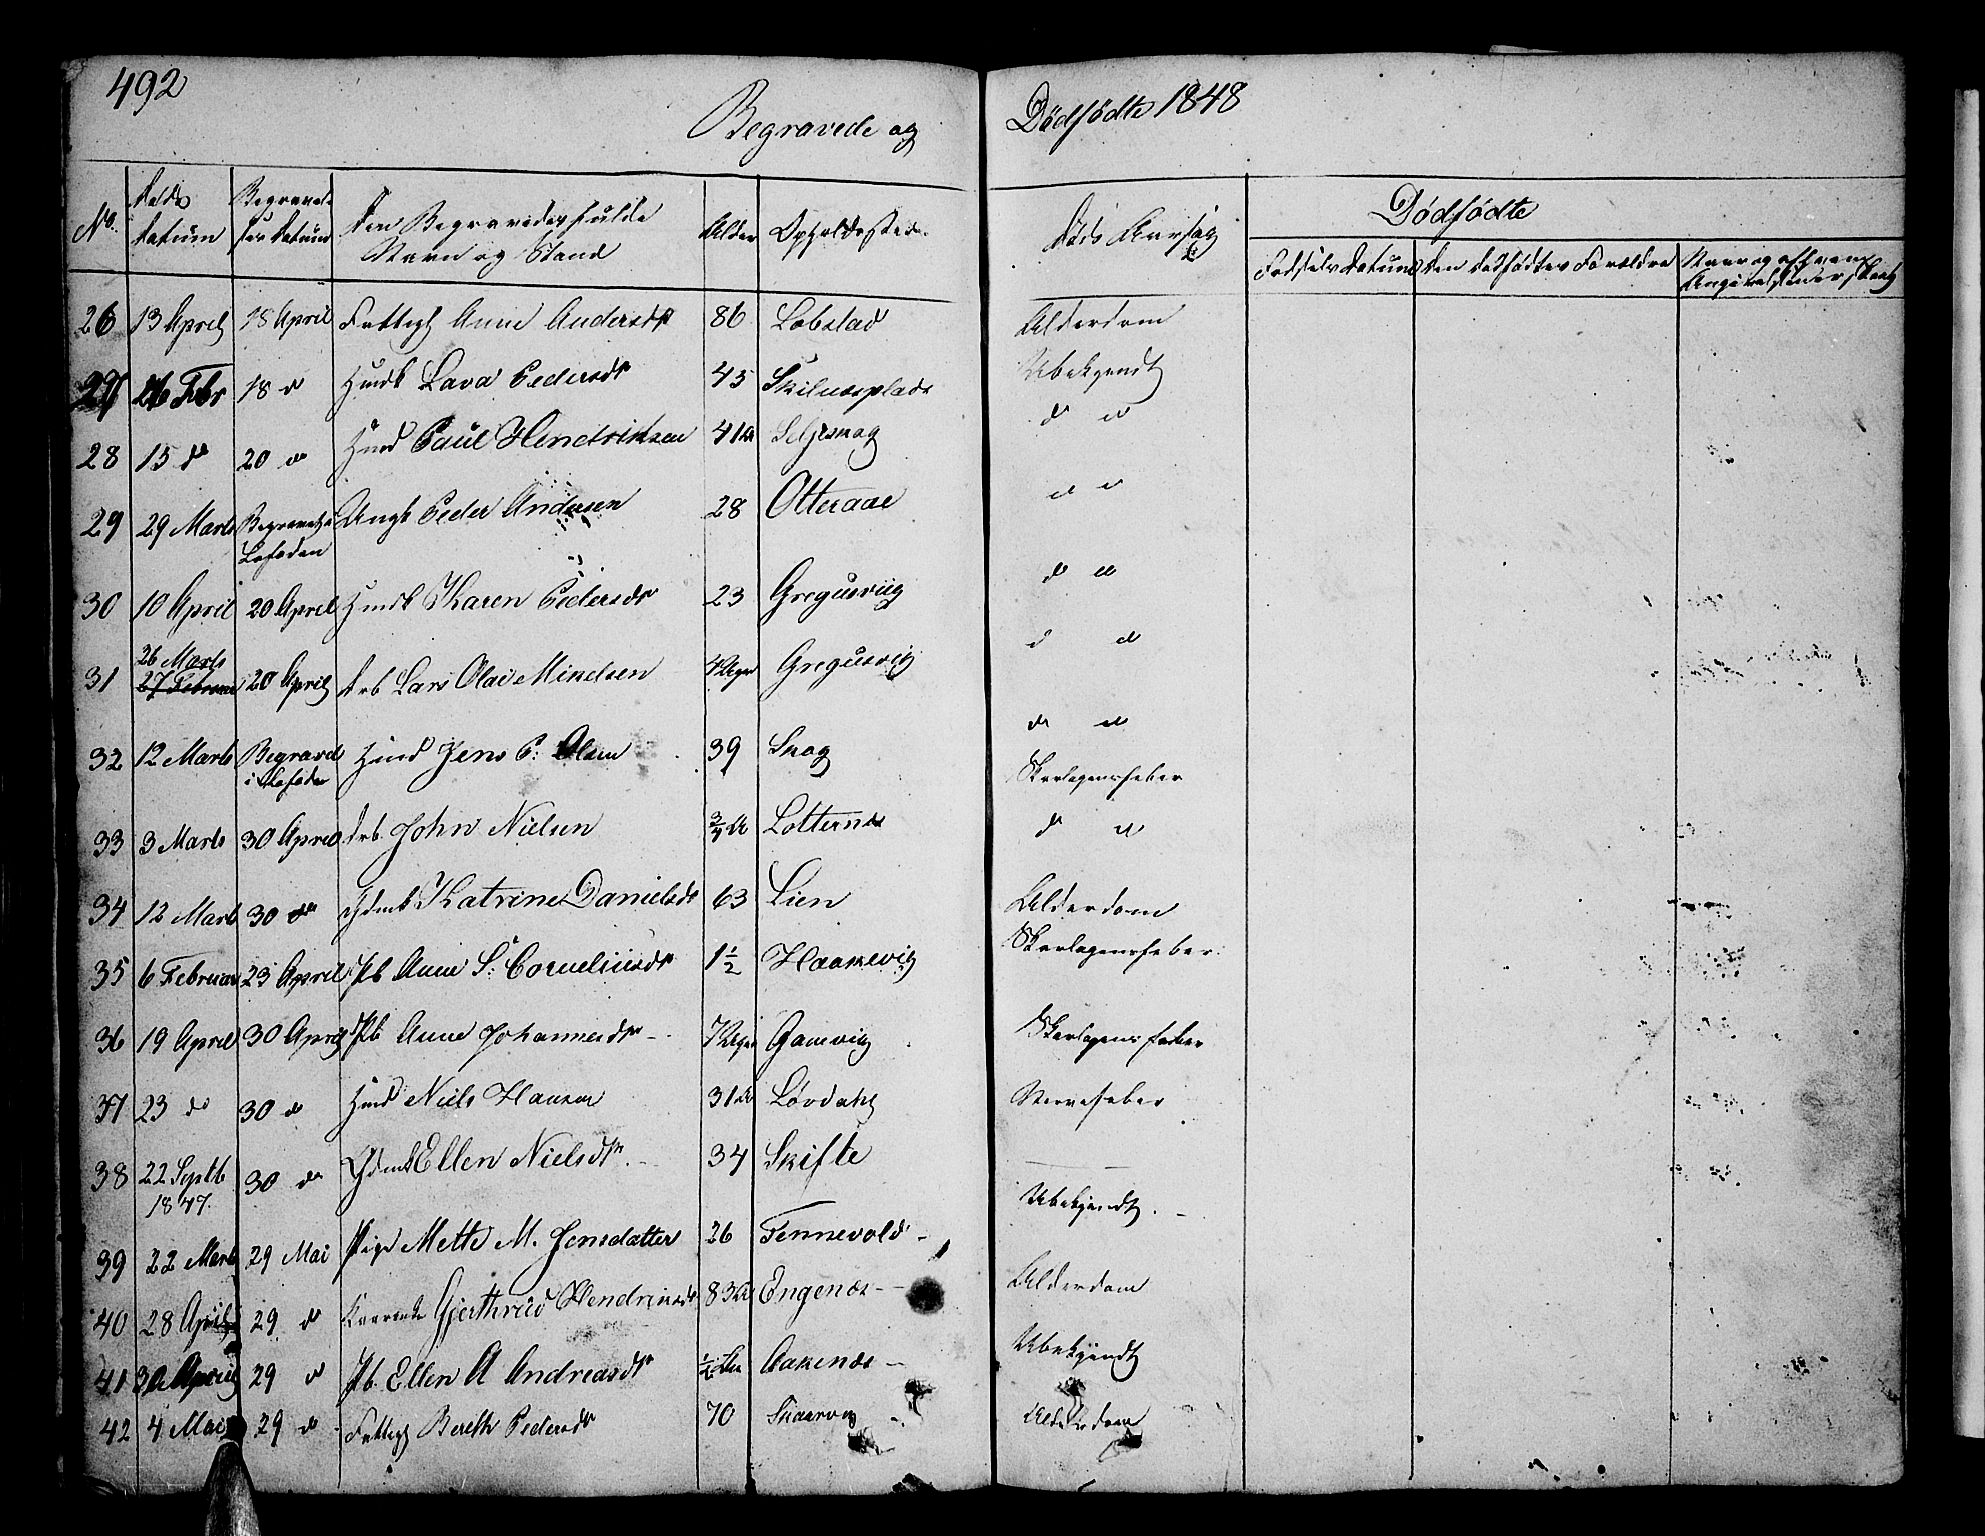 492
Begravede og
Dödfödte 1848
No. Døds Datum Begravel- ses Datum Den Begravedes fulde Navn og Stand Alder Opholdssted. Døds Aarsag Dödfödte
Fødsels Datum Den Dødfødtes Forældre
26 13 April 18 April Fattigl Anne Andersdr 86 Lobstad Alderdom
27 26 Febr 18 d Huusk Lava Pedersdr 45 Skilnesplads Ubekjendt
28 15 dr 20 dr Huusm Paul Hendriksen 41 Seljeskog d d
29 29 Marts Begravet i Lofoden Ungk Peder Andersen 28 Otteraae d d
30 10 April 20 April Huusk Karen Pedersdr 23 Gregusviig d d
31 26 Marts 27 Februar 20 April Drb Lars Olai Mikelsen 4 Uger Gregusvig d d
32 12 Marts Begravet i Lofoden Huusm Jens P: Olsen 39 Skog d d
33 3 Marts 30 April Drb. John Nielsen 3/4 A Lotternes Skarlagensfeber
34 12 Marts 30 dr Katrine Danielsdr 63 Lien Alderdom
35 6 Februar 23 April Pb Anne S: Corneliusdr 1 1/2 Haakevig Skarlagensfeber
36 19 April 30 April Pb Anne Johannesdr 7 Uger Gamvig Skarlagensfeber
37 23 dr 30 d Huusm Niels Hansen 31 Løvdahl Nervefeber
38 22 Septb 1847. 30 dr Ellen Nielsdr. 34 Skifte
39 22 Marts 29 Mai Pige Mette M. Jensdatter 26 Tennevold Ubekjendt.
40 28 April 29 d Gjerthrud Hendriksdr 83 Engenæs Alderdom
41 30 April 29 d Pb. Ellen A Andreasdr 1/2 Aar Aakenæs Ubekjendt
42 4 Mai 29 d Fattigl Bereth Pedersdr 70 Alderdom